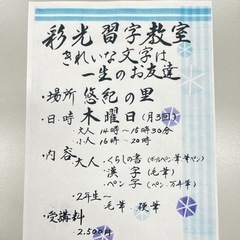 彩光習字教室
きれいな文字は
一生のお友達
・場所 悠紀の里
・日時 木曜日(月3回)
・大人 14時~15時30分
・小人 16時~20時
・内容
大人・くらしの書(ボールペン 筆 筆ペン)
・漢字(毛筆)
・ペン字(ペン・万年筆)
・2年生~
・毛筆 硬筆
・受講料
・2,508円